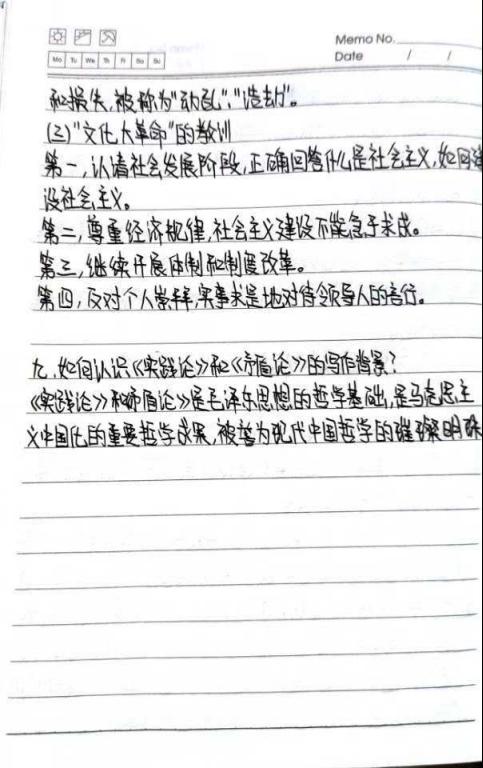 Memo No.
Mo Tu We Th Fr Sa Su
Date / /
和损失,被称为"动乱"、"浩劫"。
(三)"文化大革命"的教训
第一,认清社会发展阶段,正确回答什么是社会主义,如何建
设社会主义。
第二,尊重经济规律,社会主义建设不能急于求成。
第三,继续开展体制和制度改革。
第四,反对个人崇拜,实事求是地对待领导人的言行。
九.如何认识《实践论》和《矛盾论》的写作背景?
《实践论》和矛盾论》是毛泽东思想的哲学基础,是马克思主
义中国化的重要哲学成果,被誉为现代中国哲学的璀璨明珠